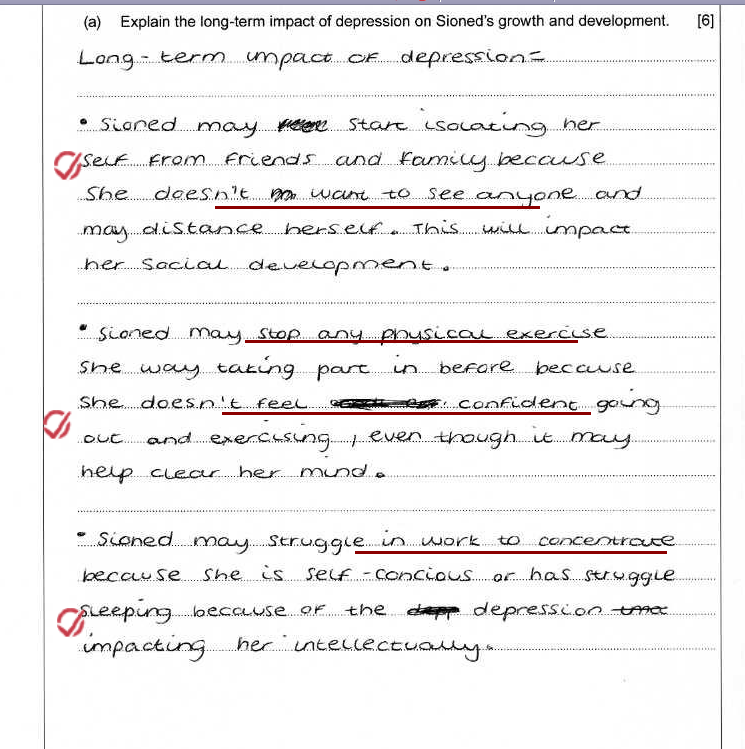 (a) Explain the long-term impact of depression on Sioned's growth and development. [6]
Long-term impact of depression=
• Sioned may start isolating her
self from friends and family because
she doesn't want to see anyone and
may distance herself. This will impact
her social development.
• Sioned may stop any physical exercise
she way taking part in before because
she doesn't feel confident going
out and exercising, even though it may
help clear her mind.
• Sioned may struggle in work to concentrate
because she is self-concious or has struggle
sleeping because of the depression
impacting her intellectually.